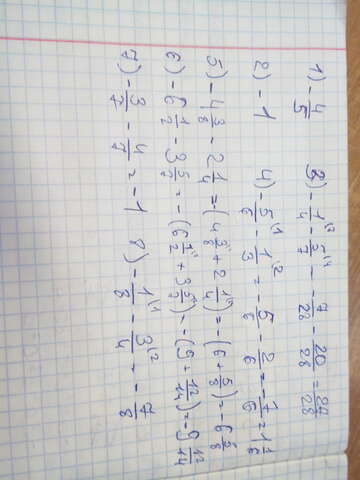 1) -4/5 3) -1/4 - 5/7 = -7/28 - 20/28 = 27/28
2) -1 4) -5/6\1 - 1/3\2 = -5/6 - 2/6 = -7/6 = 1 1/6
5) -4 3/8 - 2 1/4 = -(4 3/8 + 2 1/4) = -(6 + 5/8) = -6 5/8
6) -6 1/2 - 3 5/7 = -(6 1/2 + 3 5/7) = -(9 + 12/14) = -9 12/14
7) -3/7 - 4/7 = -1 8) -1/8\1 - 3/4\2 = -7/8